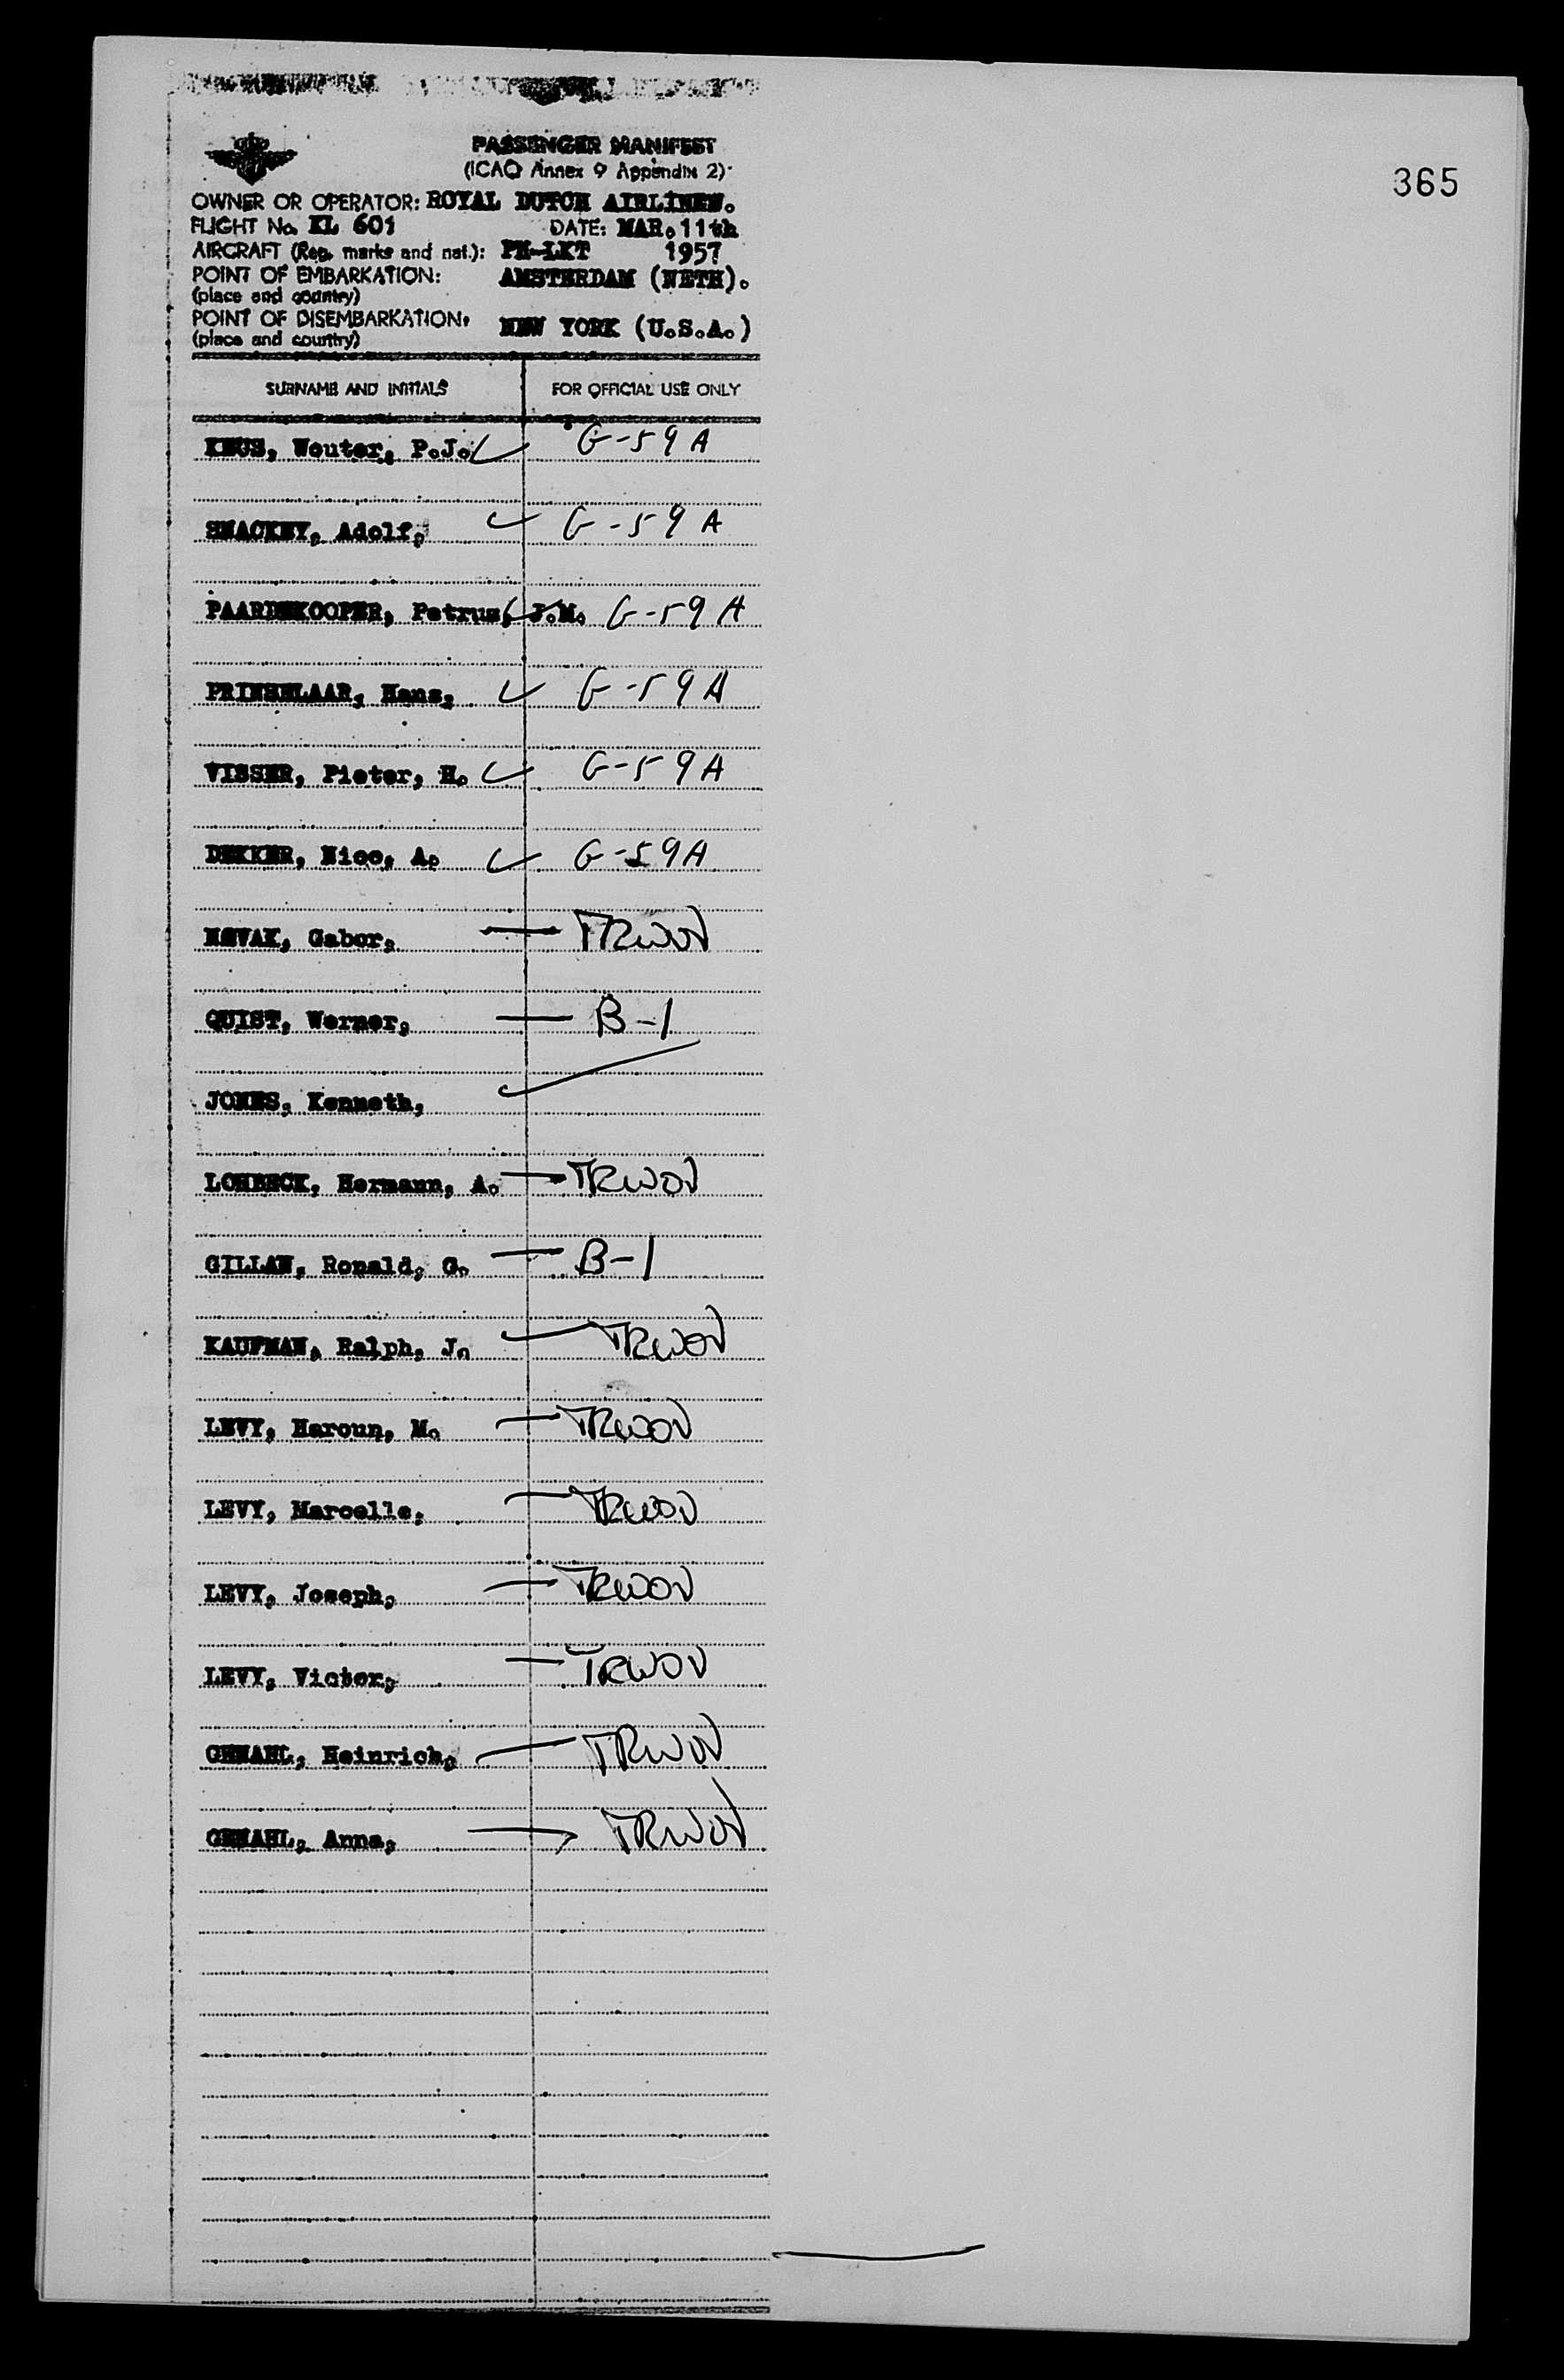 365
PASSENGER MANIFEST
(ICAO Annex 9 Appendix 2)
OWNER OR OPERATOR: ROYAL DUTCH AIRLINES.
FLIGHT No. KL 601 DATE: MAR. 11th
AIRCRAFT (Reg. marks and nat.): PH-LKT 1957
POINT OF EMBARKATION: AMSTERDAM (NETH).
(place and country)
POINT OF DISEMBARKATION: NEW YORK (U.S.A.)
(place and country)
SURNAME AND INITIALS FOR OFFICIAL USE ONLY
Wouter, P.J. G-59A
Adolf, G-59A
PAARDEKOOPER, Petrus, J.M. G-59A
PRINSELAAR, Hans, G-59A
VISSER, Pieter, H. G-59A
DEKKER, Nico, A. G-59A
NOVAK, Gabor, TRWOV
QUIST, Werner, B-1
JONES, Kenneth,
LOHBECK, Hermann, A. TRWOV
GILLAN, Ronald, G. B-1
KAUFMAN, Ralph, J. TRWOV
LEVY, Haroun, M. TRWOV
LEVY, Marcelle, TRWOV
LEVY, Joseph, TRWOV
LEVY, Victor, TRWOV
GEMAHL, Heinrich, TRWOV
GEMAHL, Anna, TRWOV